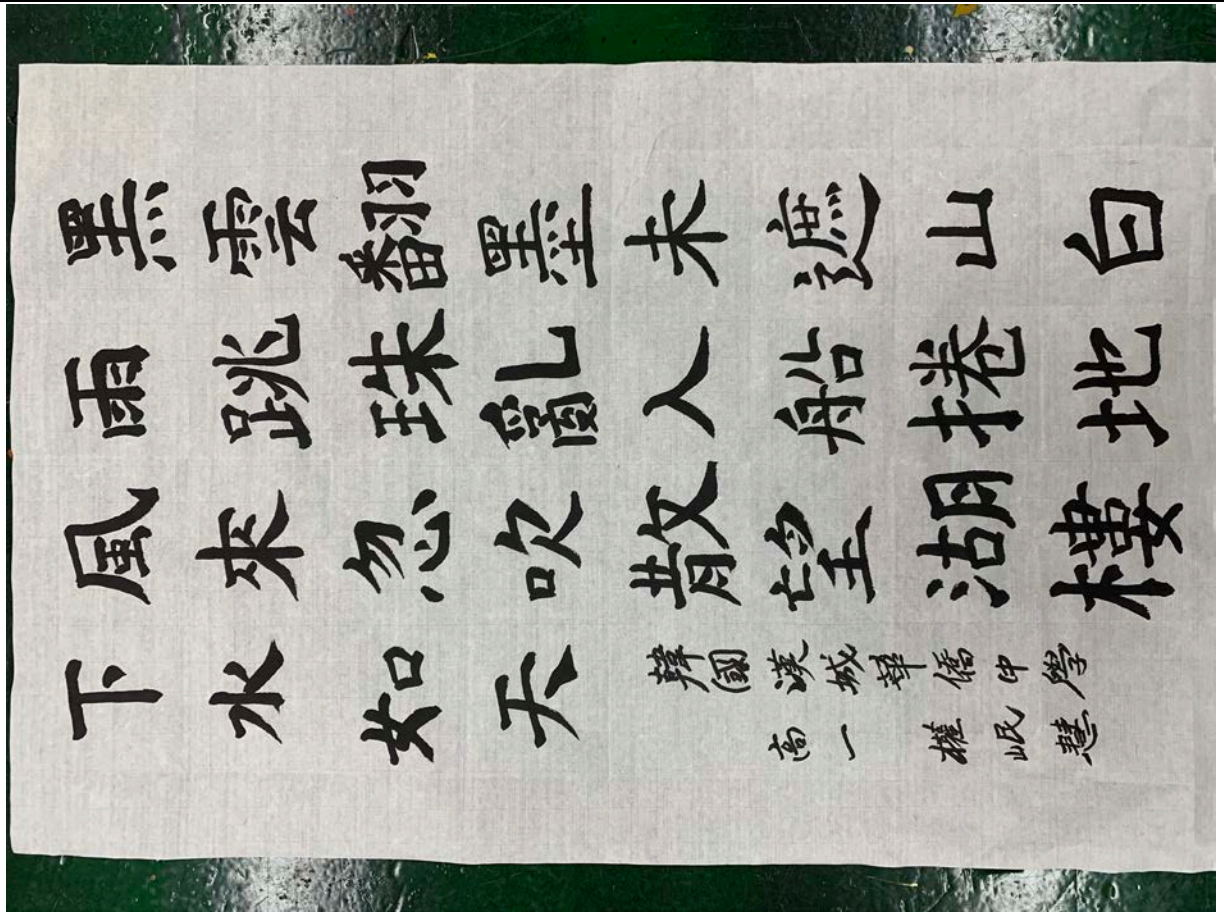 黑雲翻墨未遮山白
雨跳珠亂入船捲地
風來忽吹散望湖樓
下水如天
韓國漢城華僑中學
高一 權岷慧